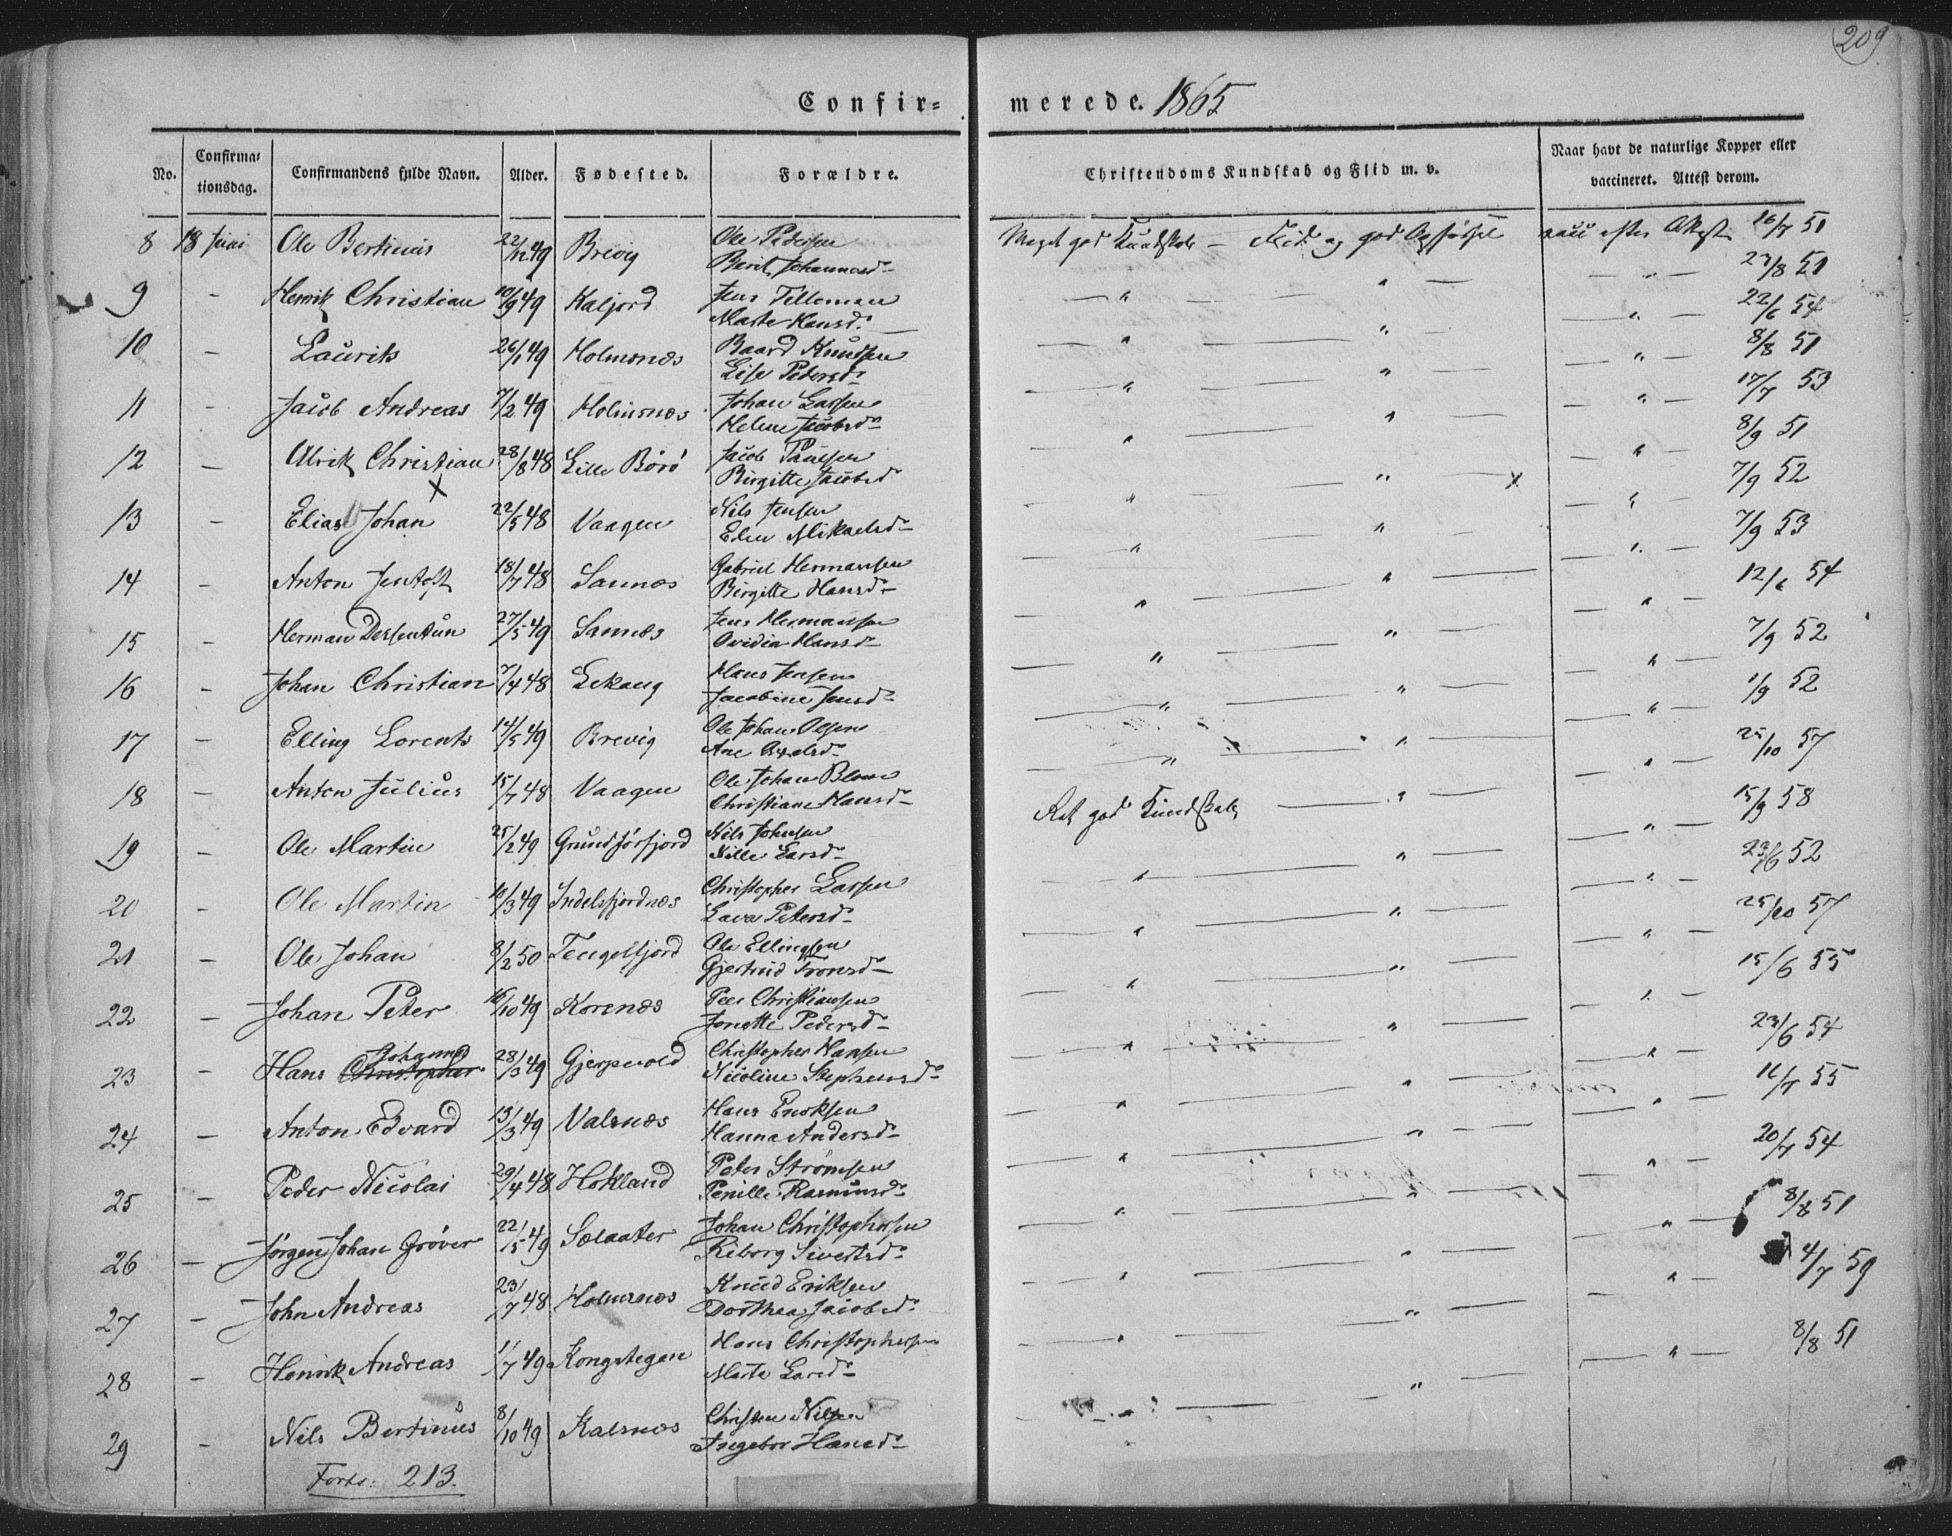 209
Confir= merede. 1865
No. Confirmationsdag. Confirmandens fulde Navn. Alder. Fødested. Forældre. Christendoms Kundskab og Flid m. v. Naar havt de naturlige Kopper eller vaccineret. Attest derom.
8 18 Juni Ole Bertinus 22/12 49 Brevig Ole Pedersen Meget god Kundskab – Flid og god Opførsel vacc efter Attest 16/7 51
Berit Johannesd.
9 – Henrik Christian 10/9 49 Kaljord Jens Tilleman – " – – " – – " – 23/8 51
Marte Hansd.
10 – Laurits 26/1 49 Holmsnæs Baard Knudsen – " – – " – – " – 22/6 54
Lise Pedersd.
11 – Jacob Andreas 7/2 49 Holmsnæs Johan Larsen – " – – " – – " – 8/8 51
Helene Jacobsd.
12 – Ulrik Christian 28/8 48 Lille Børø Jacob Paulsen " – – " – " – 17/7 53
Birgitte Jacobsd
13 – Elias Johan X 22/5 48 Vaagen Nils Jensen " – – " – X – " – 8/9 51
Mikaelsd.
14 – Anton Jentoft 18/7 48 Sannæs Gabriel Hermansen – " – – " – – " – 7/9 52
Birgitte Hansd.
15 Herman 27/5 49 Sannæs Jens Hermansen – " – – " – – " – 7/9 53
Ovidia Hansd.
16 – Johan Christian 7/4 48 Lekang Hans Jensen – " – – " – – " – 12/6 54
Jacobine Jensd.
17 – Elling Lorents 14/5 49 Brevig Ole Johan Olsen – " – – " – – " – 7/9 52
Ane Axelsd.
18 – Anton Julius 15/7 48 Vaagen Ole Johan Blom – " – – " – – " – 1/9 52
Christiane Hansd.
19 – Ole Martin 25/2 49 Grundførfjord Nils Johnsen Ret god Kundskab – " – – " – 25/10 57
Nille Larsd.
20 – Ole Martin 10/3 49 Indelsfjordnæs Christopher Larsen – " – – " – – " – 15/9 58
Petersd.
21 – Ole Johan 8/2 50 Tengelfjord Ole Ellingsen – " – – " – – " – 23/6 52
Gjertrud Tronsd.
22 – Johan Peter 16/10 49 Korsnæs Peer Christiansen – " – – " – – " – 25/10 57
Jonette Pedersd.
23 – Hans Johannes Christopher 28/3 49 Christopher Hansen – " – – " – – " – 15/6 55
Nicoline Stephensd.
24 – Anton Edvard 13/3 49 Valsnæs Hans Eriksen – " – – " – – " – 23/6 54
Hanna Andersd.
25 – Peder Nicolai 29/4 48 Hokland Peter Strømsen – " – – " – – " – 11/7 55
Pernille Rasmusd.
26 – Jørgen Johan Grøver 22/5 49 Sælaater Johan Christophersen – " – – " – – " – 20/7 54
Riborg Sivertsd.
27 – John Andreas 23/7 48 Holmsnæs Knud Eriksen – " – – " – – " – 8/8 51
Dorthea Jacobsd.
28 – Henrik Andreas 1/7 49 Kongstegen Hans Christophersen – " – – " – – " – 4/7 59
Marta Larsd.
29 – Nils Bertinus 8/10 49 Kalsnæs Christen Nilsen " – " – – " – 8/8 51
Ingebor Hansd.
Forts: 213.